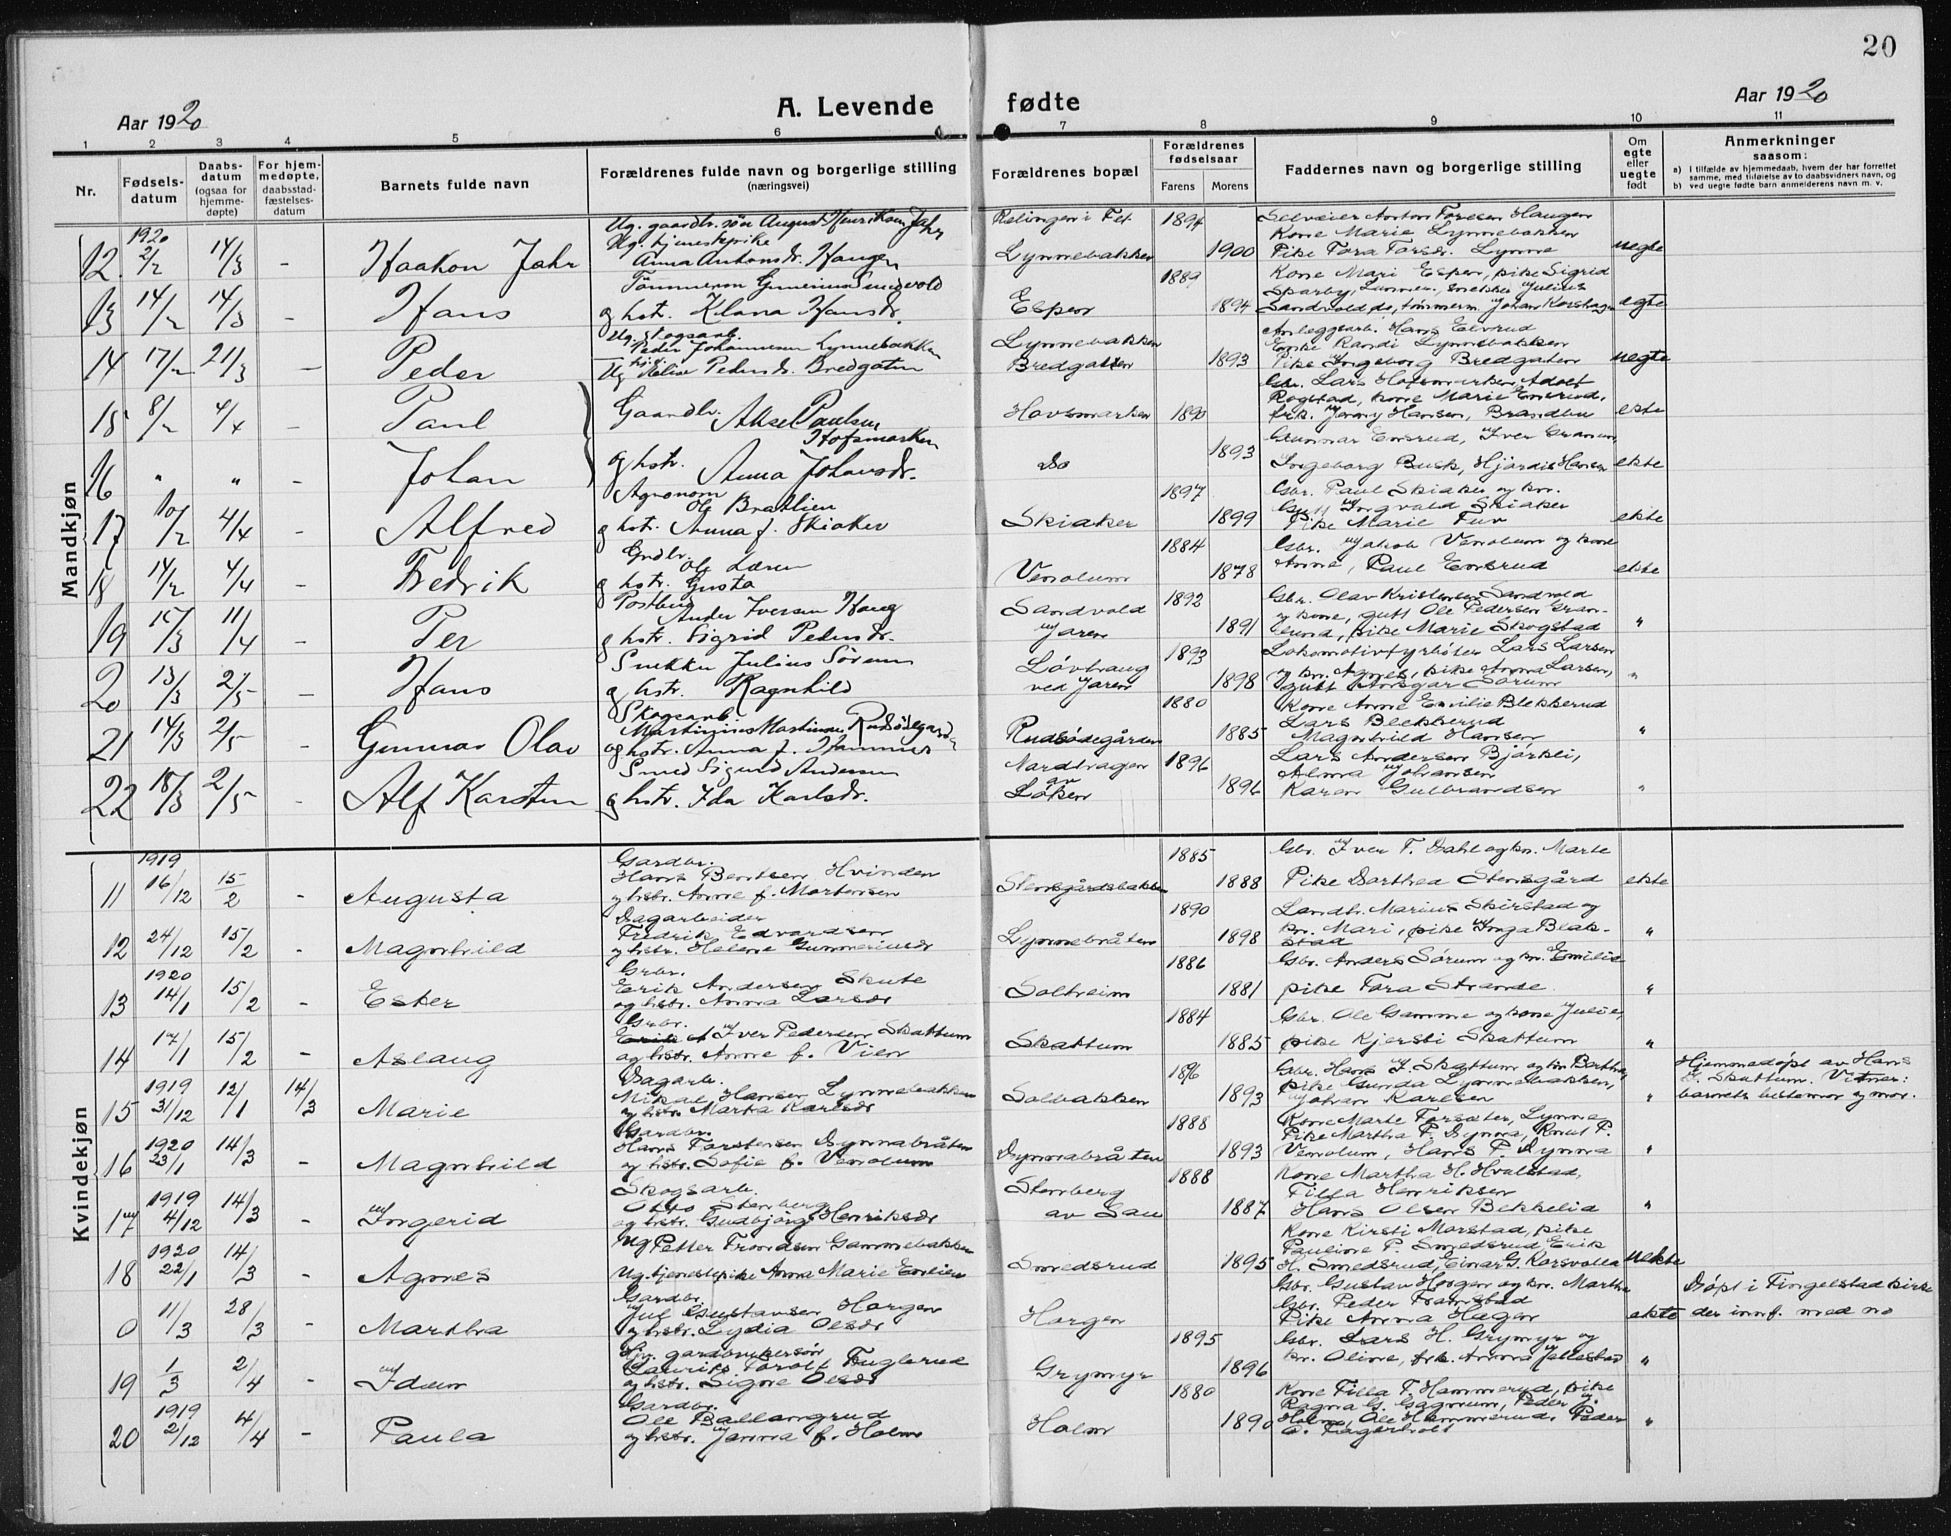 20
Aar 1920
A. Levende fødte
Aar 1920
1 2 3 4 5 6 7 8 9 10 11
Nr.
Fødsels-
datum
Daabs-
datum
(ogsaa for
hjemme-
døpte)
For hjem-
medøpte,
daabsstad-
fæstelses-
datum
Barnets fulde navn
Forældrenes fulde navn og borgerlige stilling
(næringsvei)
Forældrenes bopæl
Forældrenes
fødselsaar
Farens Morens
Faddernes navn og borgerlige stilling
Om
egte
eller
uegte
født
Anmerkninger
saasom:
a) I tilfælde av hjemmedaab, hvem der har forrettet
samme, med tilføielse av to daabsvidners navn, og
b) ved uegte fødte barn anmelderens navn m. v.
Mandkjøn
1920
12 2/2 14/3 - Haakon Jahr
Ug. gaardbr. søn August Henriksen Jahr
Ug. tjenestepike
Anna Antonsdr. Haugen
Lynnebakken
1894
1900
Selveier Anton Toresen Haugen
Kone Marie Lynnebakken
Pike Tora Torsdr. Lynne
uegte
13 14/2 14/3 - Hans
og hstr. Klara Hansdr.
Espen
1889
1894
Kone Mari Espen, pike Sigrid
Sparby, Lunner, snekker Julius
Sandvold, do, tømmerm. Johan
egte
14 17/2 21/3 - Peder
Ug. skogsarb.
Peder Johannesen Lynnebakken
Ug. Pedersdr. Bredgaten
Lynnebakken
Bredgaten
1893
Anlæggsarb. Hans
Enke Randi Lynnebakken
Pike Ingeborg Bredgaten
uegte
15 8/2 4/4 - Paul
Gaardbr. Aksel Paulsen
Hofsmarken
Hovsmarken
1890
Gbr. Lars Hofsmarken, Adolf
Rogstad, kone Marie Ensrud,
frk. Jenny Hansen, Brandbu
ekte
16 " " - Johan
og hstr. Anna Johansdr.
Do
1893
Gunnar Ensrud, Iver Granum
Ingeborg Busk, Hjørdis Hansen
ekte
17 10/2 4/4 - Alfred
Agronom
Ole Bratlien
og hstr. Anna f. Skiaker
Skiaker
1897
1899
Gbr. Paul Skiaker og kn.
Gutt Ingvald Skiaker
Pike Marie
ekte
18 14/2 4/4 - Fredrik
Grdbr.
Ole
og hstr. Gusta
Venolum
1884
1878
Gbr. Jakob Venolum og kone
Anne, Paul Ensrud
ekte
19 15/3 11/4 - Per
Postbud
Ander Iversen Haug
og hstr. Sigrid Pedersdr.
Sandvold
Jaren
1892
1891
Gbr. Olav Kristensen Sandvold
og kone, gutt Ole Pedersen Gran-
lund, pike Marie Skogstad
"
20 13/3 2/5 - Hans
Snekker Julius Sørum
og hstr. Ragnhild
Løvhaug
ved Jaren
1893
1898
Lokomotivfyrbøter Lars Larsen
og kn. Agnes, pike Anna Larsen,
gutt Ansgar Sørum
"
21 14/3 2/5 - Gunnar Olav
Skogsarb.
Martinius Martinsen Rudsødegarden
og hstr. Anna f. Hammer
Rudsødegården
1880
1885
Kone Anne Emilie Blekkerud
Lars Blekkerud
Magnhild Hansen
"
22 18/3 2/5 - Alf Karsten
Smed Sigurd Andersen
og hstr. Ida Karlsdr.
Nordhagen
av
Løken
1896
1896
Lars Andersen Bjørkli,
Alma Johansen
Karen Gulbrandsen
"
Kvindekjøn
1919
11 16/12 15/2 - Augusta
Gardbr.
Hans Bentsen Hvinden
og hstr. Anne f. Mortensen
Stensgårdsbakken
1885
1888
Gbr. Iver T. Dahl og kn. Marte
Pike Dorthea Stensgård
ekte
12 24/12 15/2 - Magnhild
Dagarbeider
Fredrik Edvardsen
og hstr. Helene Gunneriusdr
Lynnebråten
1890
1898
Landbr. Marius Skirstad og
kn. Mari, pike Inga Blek-
stad
"
1920
13 14/1 15/2 - Ester
Grbr.
Erik Andersen Skute
og hstr. Anna Larsdr
Solheim
1886
1881
Gbr. Anders Sørum og kn. Emilie
pike Tora Strande
"
14 17/1 15/2 - Aslaug
Grbr.
Iver Pedersen Skattum
og hstr. Anne f. Vien
Skattum
1884
1885
Gbr. Ole Gamme og kone Julie,
pike Kjersti Skattum
"
1919
15 31/12 12/1 14/3 Marie
Dagarb.
Mikal Hansen Lynnebakken
og hstr. Marta Karlsdr
Solbakken
1896
1893
Gbr. Hans I. Skattum og kn. Berthe,
pike Gunda Lynnebakken,
Johan Karlsen
"
Hjemmedøpt av Hans
I. Skattum. Vitner:
barnets bestemor og mor.
1920
16 23/1 14/3 - Magnhild
Gardbr.
Hans Torstensen Dynnabråten
og hstr. Sofie f. Venolum
Dynnabråten
1888
1893
Kone Marte Torsæter, Lynne
Pike Martha P. Dynna, Knut P.
Venolum, Hans P. Dynna
"
1919
17 4/12 14/3 - Ingerid
Skogsarb.
Otto Stenberg
og hstr. Gudbjørg Henriksdr
Stenberg
av Lau
1888
1887
Kone Martha H. Hvalstad,
Tilla Henriksen
Hans Olsen Bekkelid
"
1920
18 22/1 14/3 - Agnes
Ug Petter Trondsen Gammebakken
Ug. tjenestepike Anna Marie Emlien
Smedsrud
1895
Kone Kirsti Morstad, pike
Pauline P. Smedsrud, Erik
H. Smedsrud, Einar G. Korsvolla
uekte
0 11/3 28/3 - Martha
Gardbr.
Jul Gustavsen Horgen
og hstr. Lydia Olsdr
Horgen
Gbr. Gustav Horgen og kn. Martha
Gbr. Peder Framstad
Pike Anna Hagen
ekte
Døpt i Tingelstad kirke
der innf. med no
19 1/3 2/4 - Idun
Hj. gardbrukersøn
Laurits Tarolf Fuglerud
og hstr. Signe Olsdr
Grymyr
1895
1896
Gbr. Lars H. Grymyr og
kn. Oline, frk. Anna
"
1919
20 2/12 4/4 - Paula
Gardbr.
Ole Ballangrud
og hstr. Janna f. Holm
Holm
1880
1890
Kone Tilla T. Hammerud, pike
Ragna G. Gagnum, Peder J.
Holm, Ole Hammerud, Peder
O. Fagerholt
"